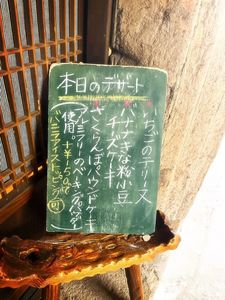 本日のデザート
いちごのテリーヌ
バナナきな粉小豆
チーズケーキ
さくらんぼパウンドケーキ
(アルミフリーのベーキングパウダー
使用。) +¥150で
バニラアイストッピング可